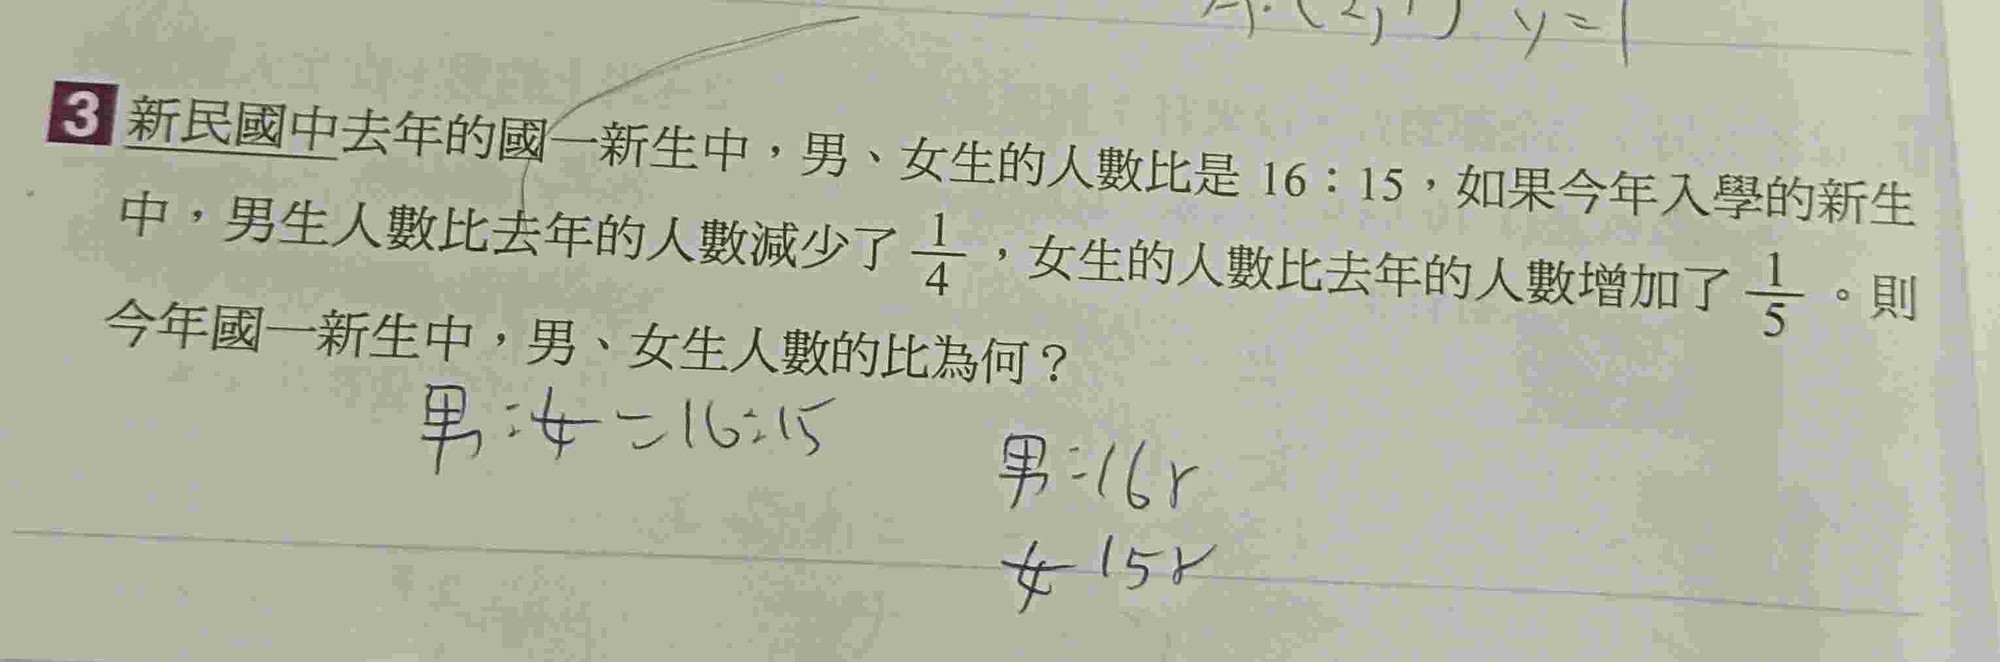 (2,1) y=1
3 新民國中去年的國一新生中，男、女生的人數比是 16：15，如果今年入學的新生
中，男生人數比去年的人數減少了 1/4，女生的人數比去年的人數增加了 1/5。則
今年國一新生中，男、女生人數的比為何？
男:女=16:15
男:16r
女 15r